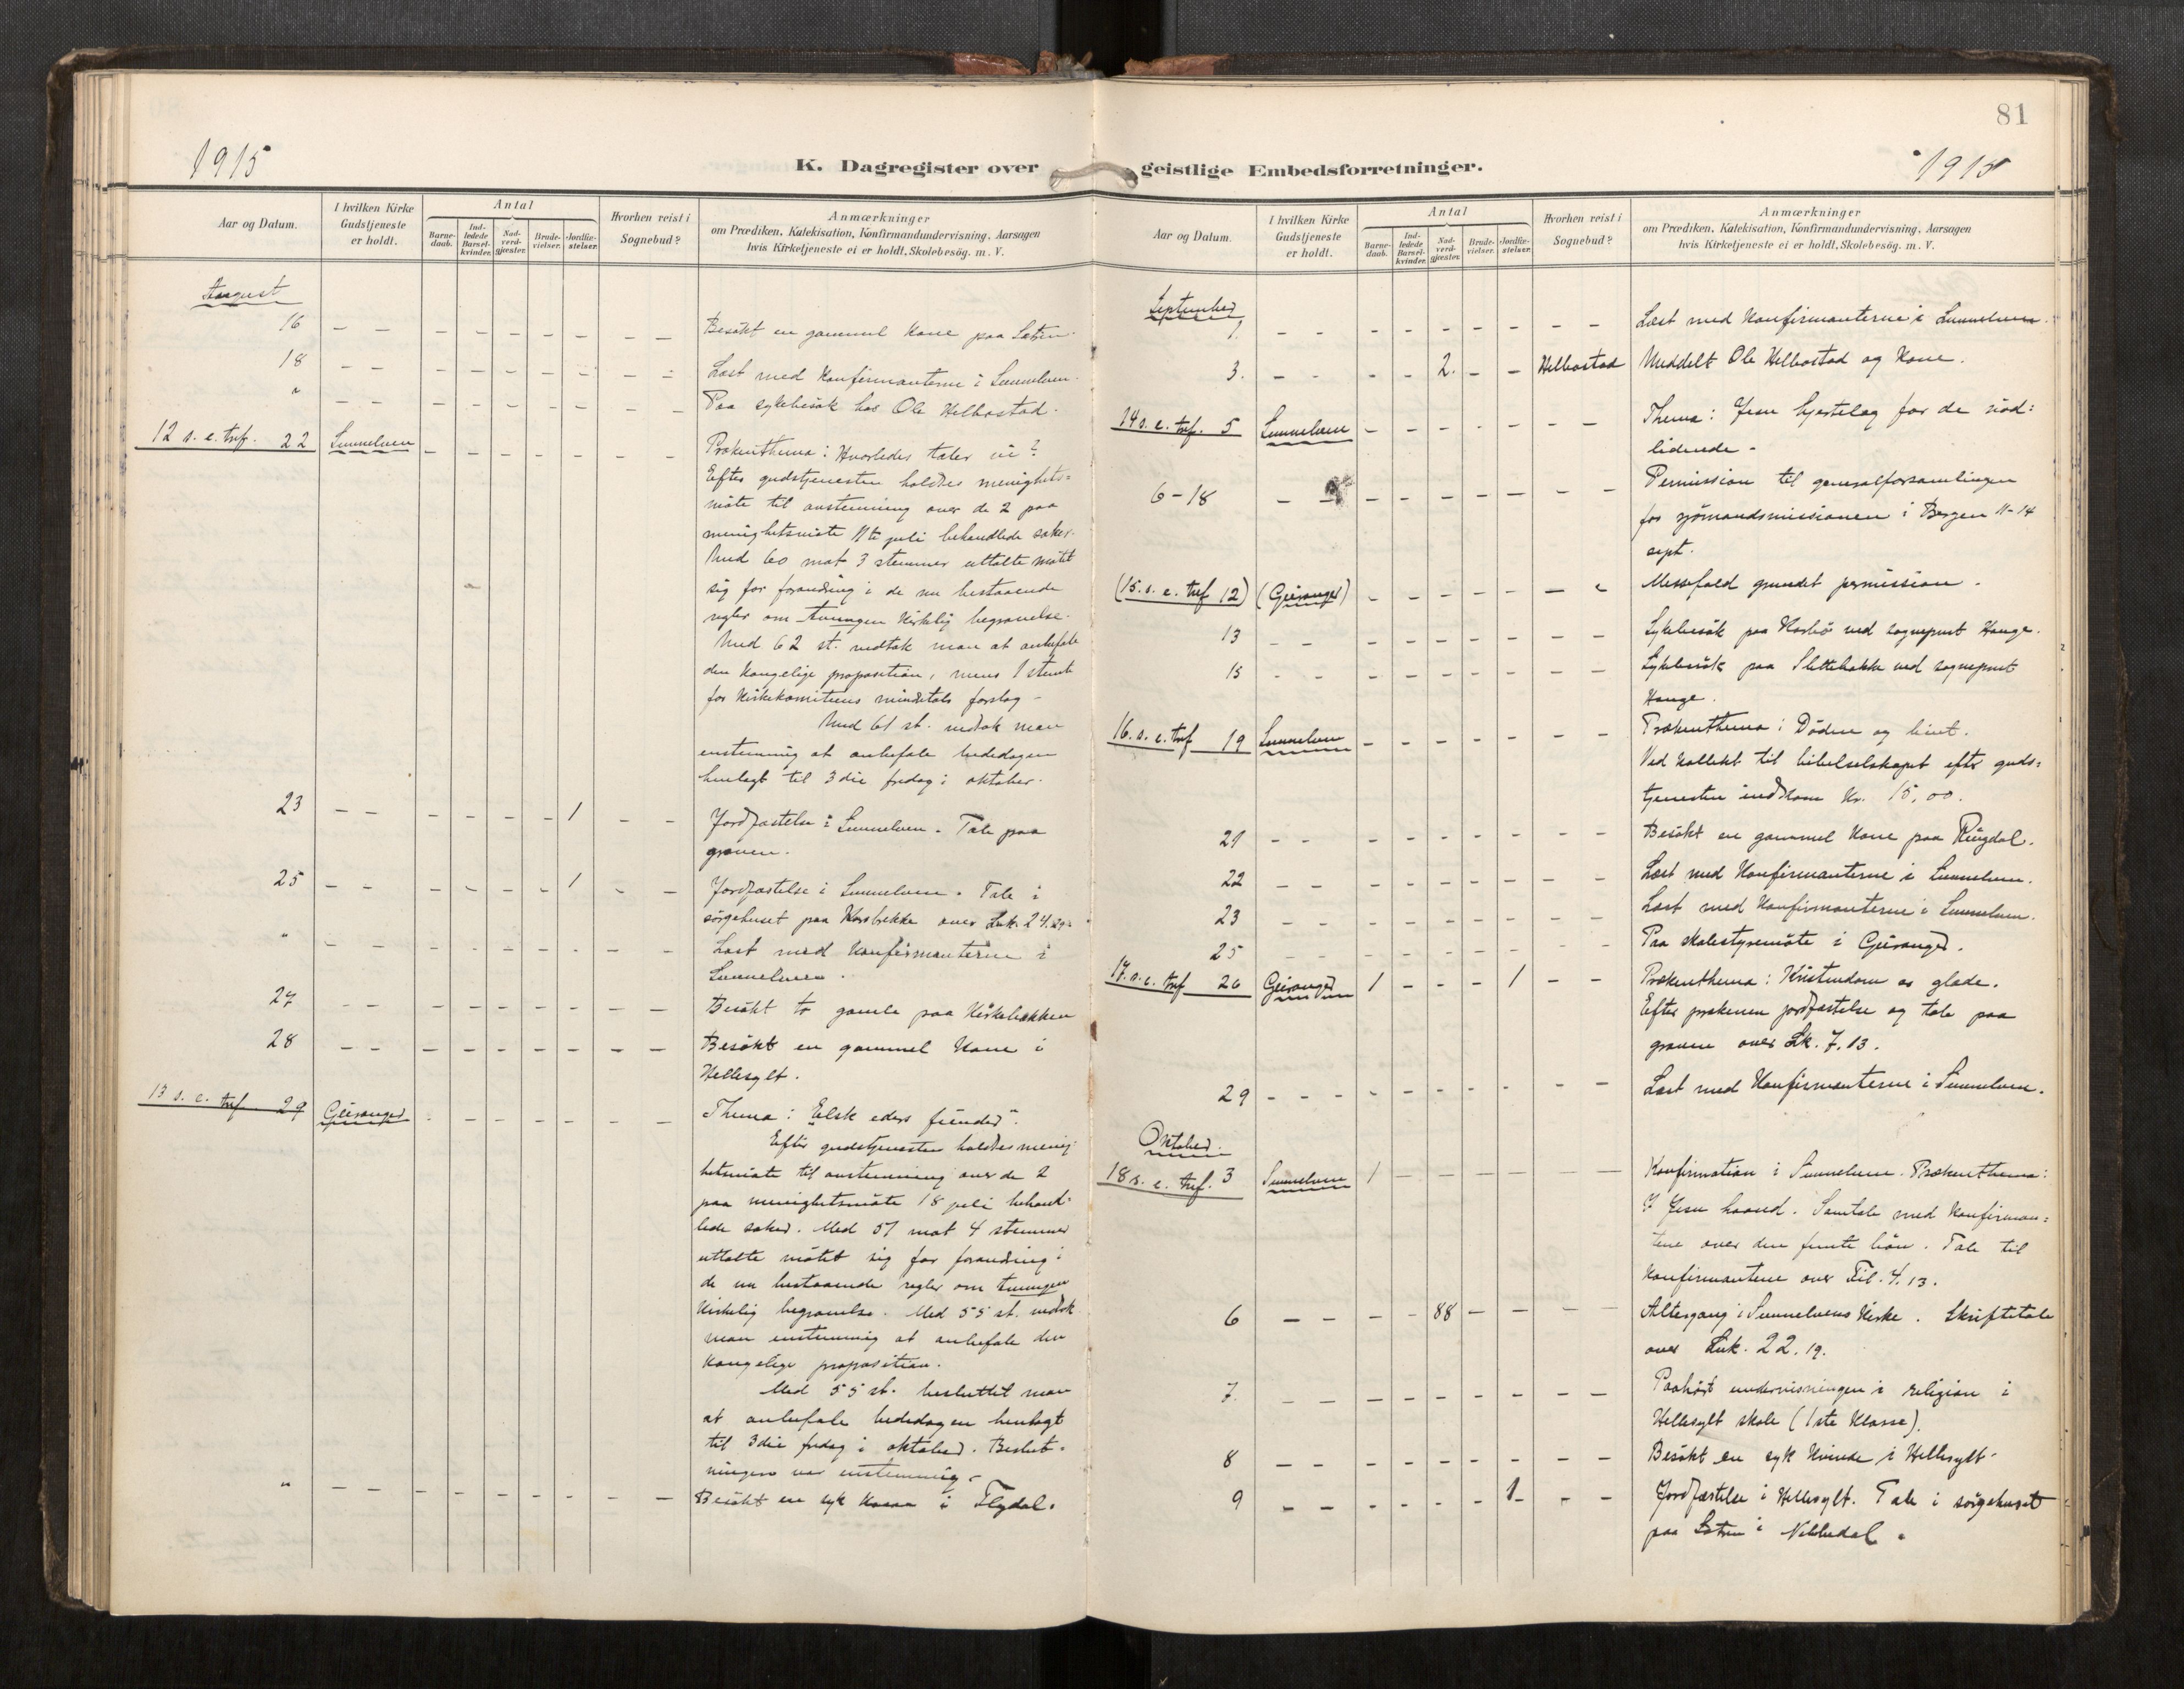 81
1915
K. Dagregister over geistlige Embedsforretninger.
1915
Aar og Datum.
I hvilken Kirke Gudstjeneste er holdt.
Antal
Barnedaab.
Indledede Barselkvinder.
Nadverdgjæster.
Brudevielser.
Jordfæstelser.
Hvorhen reist i Sognebud?
Anmærkninger
om Prædiken, Katekisation, Konfirmandundervisning, Aarsagen
hvis Kirketjeneste ei er holdt, Skolebesøg. m. V.
August
16 – – – – – – – – – Besøkt en gammel kone paa Sætren.
18 – – – – – – – – – Læst med konfirmanterne i Sunnelven.
" – – – – – – – – – Paa sykebesøk hos Ole Helbostad.
12 s. e. tref. 22 Sunnelven – – – – – – – Prækenthema: Hvorledes taler vi?
Efter gudstjenesten holdtes menighets=
møte til avstemning over de 2 paa
menighetsmøte 11te juli behandlede saker.
Med 60 mot 3 stemmer uttalte møtet
sig for forandring i de nu bestaaende
regler om tvungen kirkelig begravelse.
Med 62 st. vedtok man at anbefale
den kongelige proposition, mens 1 stemte
for kirkekomiteens mindretals forslag –
Med 61 st. vedtok man
enstemmig at anbefale bededagen
henlagt til 3die fredag i oktober.
23 – – – – – – 1 – – Jordfæstelse i Sunnelven. Tale paa
graven.
25 – – – – – – 1 – – Jordfæstelse i Sunnelven. Tale i
sørgehuset paa Korsbrekke over Luk. 24.29.
" – – – – – – – – – Læst med konfirmanterne i
Sunnelven.
27 – – – – – – – – – Besøkt to gamle paa Kirkebakken
28 – – – – – – – – – Besøkt en gammel kone i
Hellesylt.
13 s. e. tref 29 Geiranger – – – – – – – Thema: "Elsk eders fiender".
Efter gudstjenesten holdtes menig
hetsmøte til avstemning over de 2
paa menighetsmøte 18 juli behand=
lede saker. Med 57 mot 4 stemmer
uttalte møtet sig for forandring i
de nu bestaaende regler om tvungen
kirkelig begravelse. Med 55 st. vedtok
man enstemmig at anbefale den
kongelige proposition.
Med 55 st. besluttet man
at anbefale bededagen henlagt
til 3die fredag i oktober. Beslut=
ningen var enstemmig.
" – – – – – – – – – Besøkt en syk kone i Flydal.
Aar og Datum.
I hvilken Kirke Gudstjeneste er holdt.
Antal
Barnedaab.
Indledede Barselkvinder.
Nadverdgjæster.
Brudevielser.
Jordfæstelser.
Hvorhen reist i Sognebud?
Anmærkninger
om Prædiken, Katekisation, Konfirmandundervisning, Aarsagen
hvis Kirketjeneste ei er holdt, Skolebesøg. m. V.
September
1. – – – – – – – – – Læst med konfirmanterne i Sunnelven.
3. – – – – 2. – – Helbostad Meddelt Ole Helbostad og kone.
14 s. e. tref. 5 Sunnelven – – – – – – – Thema: Jesu hjertelag for de nød=
lidende –
6–18 – – – – – – – – – Permission til generalforsamlingen
for sjømandsmissionen i Bergen 11–14
sept.
(15. s. e. tref 12) (Geiranger) – – – – – – – Messefald grundet permission.
13 – – – – – – – – – Sykebesøk paa ved sogneprest Hauge.
15 – – – – – – – – – Sykebesøk paa Slettebakk ved sogneprest
Hauge.
16. s. e. tref 19 Sunnelven – – – – – – – Prækenthema: Døden og livet.
Ved kollekt til bibelselskapet efter guds=
tjenesten indkom kr. 15,00.
21 – – – – – – – – – Besøkt en gammel kone paa Ringdal.
22 – – – – – – – – – Læst med konfirmanterne i Sunnelven.
23 – – – – – – – – – Læst med konfirmanterne i Sunnelven.
25 – – – – – – – – – Paa skolestyremøte i Geiranger.
17. s. e. tref 26 Geiranger 1 – – – 1 – – Prækenthema: Kristendom os glade.
Efter prækenen jordfæstelse og tale paa
graven over Lk. 7.13.
29 – – – – – – – – – Læst med konfirmanterne i Sunnelven.
Oktober.
18 s. e. tref. 3 Sunnelven 1 – – – – – – Konfirmation i Sunnelven. Prækenthema:
I Jesu haand. Samtale med konfirman=
tene over den femte bøn. Tale til
konfirmantene over Fil. 4.13.
6 – – – – 88 – – – – Altergang i Sunnelvens kirke. Skriftetale
over Luk. 22.19.
7. – – – – – – – – – Paahørt undervisningen i religion i
Hellesylt skole (1ste klasse).
8 – – – – – – – – – Besøkt en syk kvinde i Hellesylt.
9 – – – – – – 1 – – Jordfæstelse i Hellesylt. Tale i sørgehuset
paa Sætren i Nibbedal.